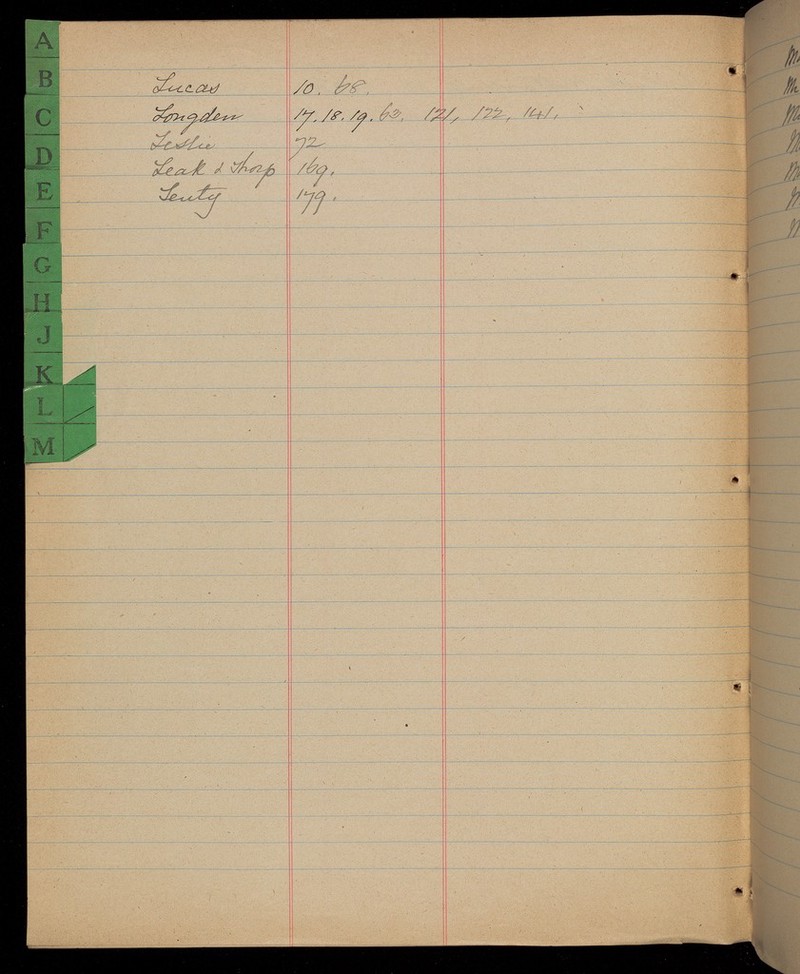 A
B
C
D
E
F
G
H
J
K
L
M
Lucas 10. 68.
Longden 17. 18. 19. 63. 121, 122, 141,
Leslie 72
Leak & Thorp 169.
Lenty 179.